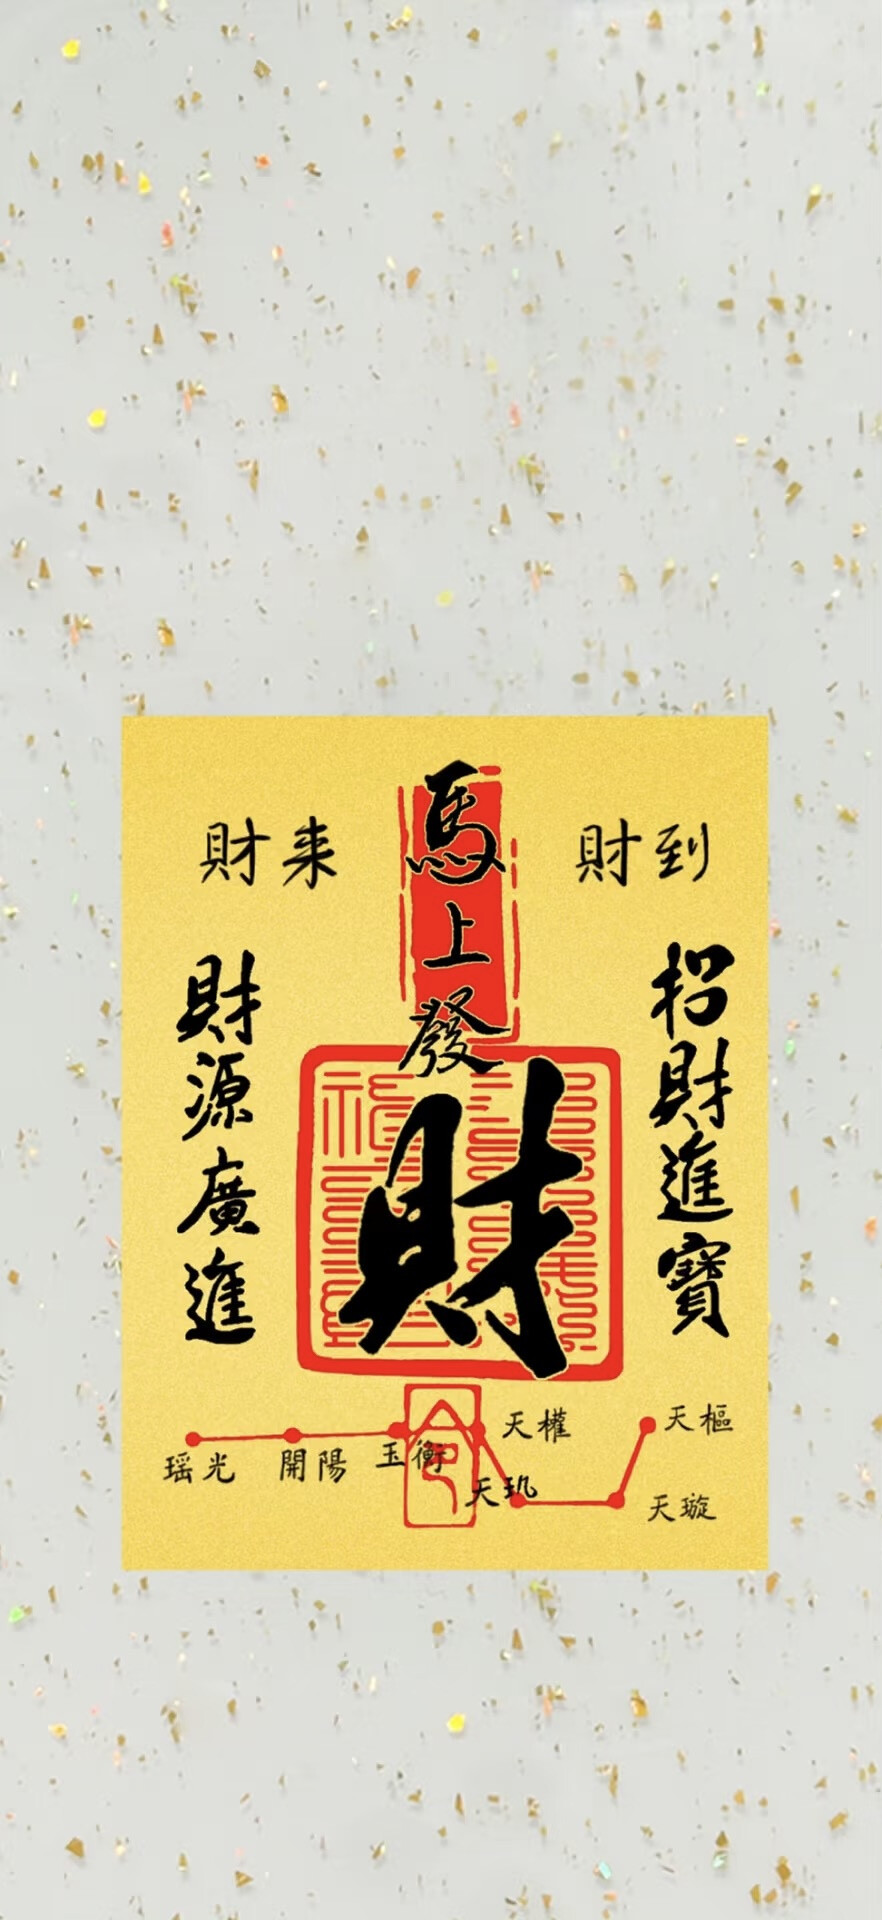 馬上發財
財来
財到
招財進寶
財源廣進
瑶光
開陽
玉衡
天權
天玑
天璇
天樞